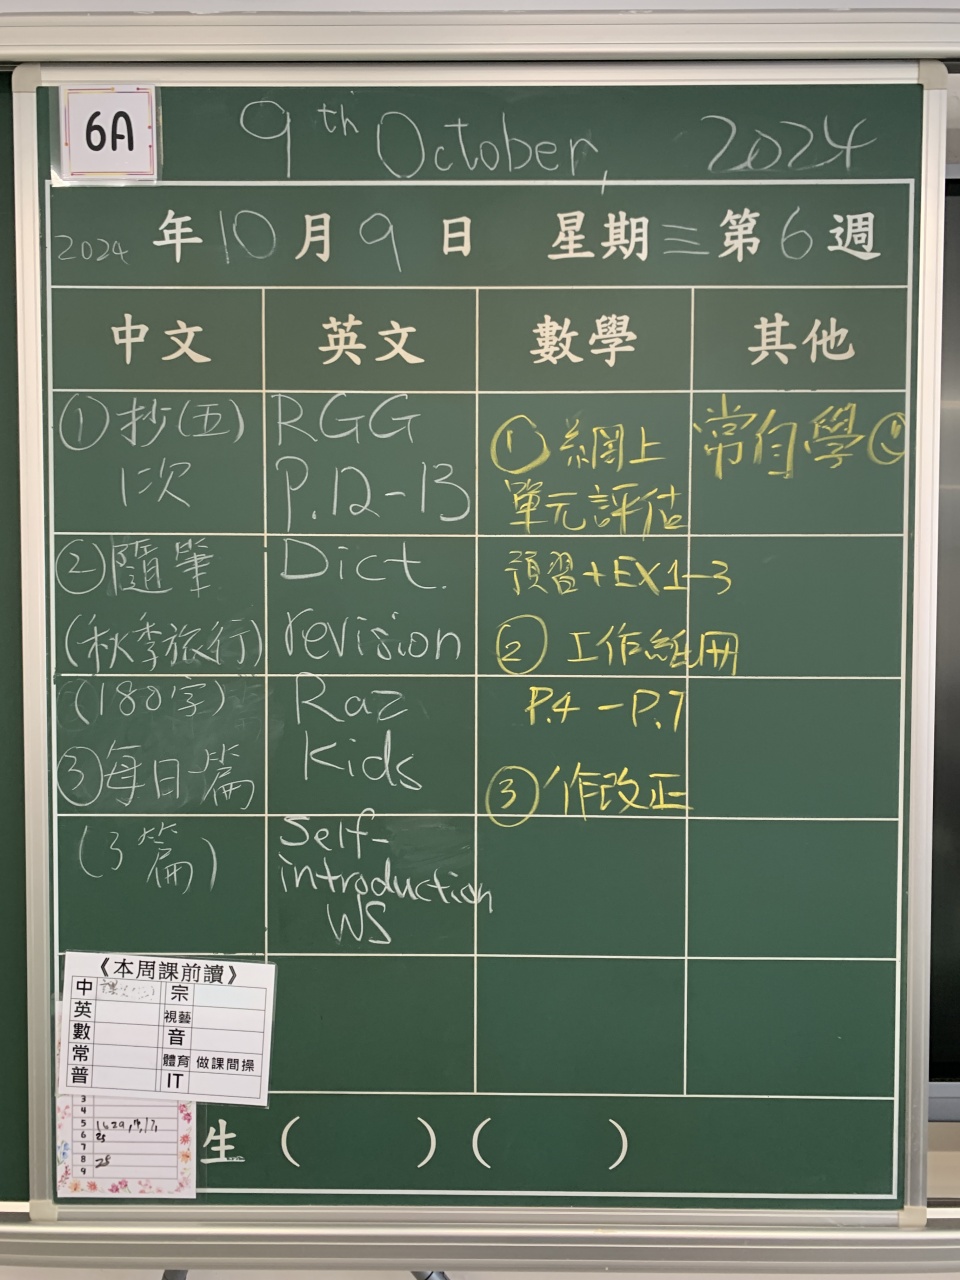 6A
9th October, 2024
2024 年 10 月 9 日 星期三 第 6 週
中文 英文 數學 其他
①抄(五)
1次
②隨筆
(秋季旅行)
(180字)
③每日一篇
(3篇)
RGG
P.12-13
Dict.
revision
Raz
Kids
Self-
introduction
WS
①網上
單元評估
預習+EX1-3
②工作紙冊
P.4-P.7
③作改正
常自學
《本周課前讀》
中 宗
英 視藝
數 音
常 體育 做課間操
普 IT
3
4
5
6 25
7
8 28
9
生 ( ) ( )